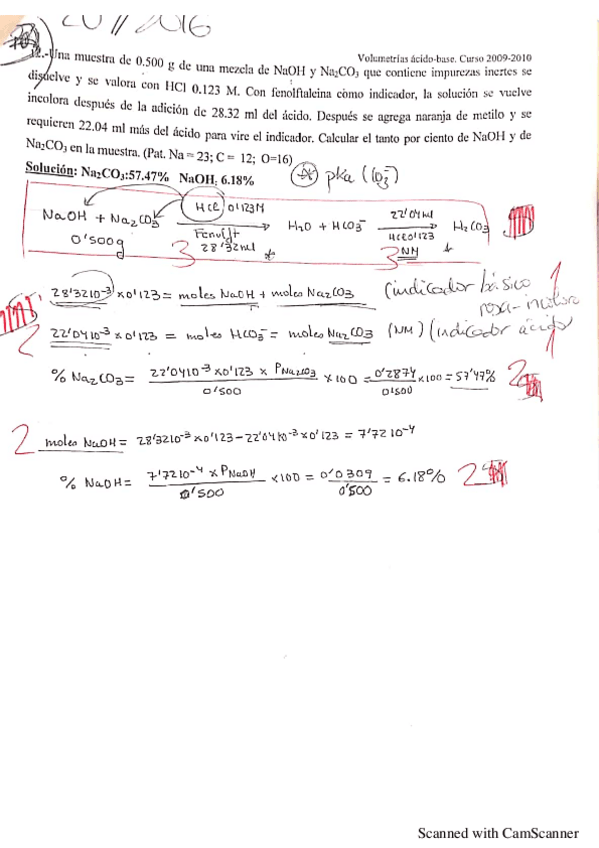 20/1/2016
Volumetrías ácido-base. Curso 2009-2010
12.-Una muestra de 0.500 g de una mezcla de NaOH y Na₂CO₃ que contiene impurezas inertes se
disuelve y se valora con HCl 0.123 M. Con fenolftaleina como indicador, la solución se vuelve
incolora después de la adición de 28.32 ml del ácido. Después se agrega naranja de metilo y se
requieren 22.04 ml más del ácido para vire el indicador. Calcular el tanto por ciento de NaOH y de
Na₂CO₃ en la muestra. (Pat. Na = 23; C = 12; O=16)
Solución: Na₂CO₃:57.47% NaOH: 6.18%
pka (CO₃⁻)
NaOH + Na₂CO₃ HCl 0'123M H₂O + HCO₃⁻ 22'04ml H₂CO₃
0'500g 3 28'32ml HCl 0'123
3 NM
28'32 10⁻³ x 0'123 = moles NaOH + moles Na₂CO₃ (indicador básico 1
rosa-incolora
2 22'04 10⁻³ x 0'123 = moles HCO₃⁻ = moles Na₂CO₃ (NM) (indicador ácido) 1
% Na₂CO₃ = 22'04 10⁻³ x 0'123 x PNa₂CO₃ / 0'500 x 100 = 0'2874 / 0'500 x 100 = 57'47% 2
2 moles NaOH = 28'32 10⁻³ x 0'123 - 22'04 10⁻³ x 0'123 = 7'72 10⁻⁴
% NaOH = 7'72 10⁻⁴ x PNaOH / 0'500 x 100 = 0'0309 / 0'500 = 6.18% 2
Scanned with CamScanner